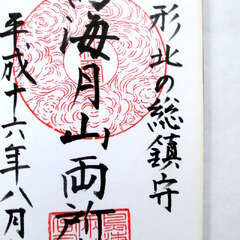 形北の総鎮守
海月山両所
平成十六年八月